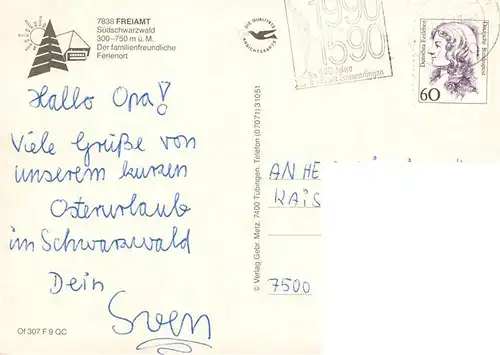 7838 FREIAMT
Südschwarzwald
300–750 m ü. M.
Der familienfreundliche
Ferienort
Hallo Opa!
Viele Grüße von
unserem kurzen
Osterurlaub
im Schwarzwald
Dein
Sven
Of 307 F 9 QC
© Verlag Gebr. Metz, 7400 Tübingen, Telefon (07071) 31051
DIE QUALITÄTS
ANSICHTSKARTE
1990
1590
400 Jahre
Stadt Emmendingen
Dorothea Erxleben
Deutsche Bundespost
60
AN HE
KAIS
7500